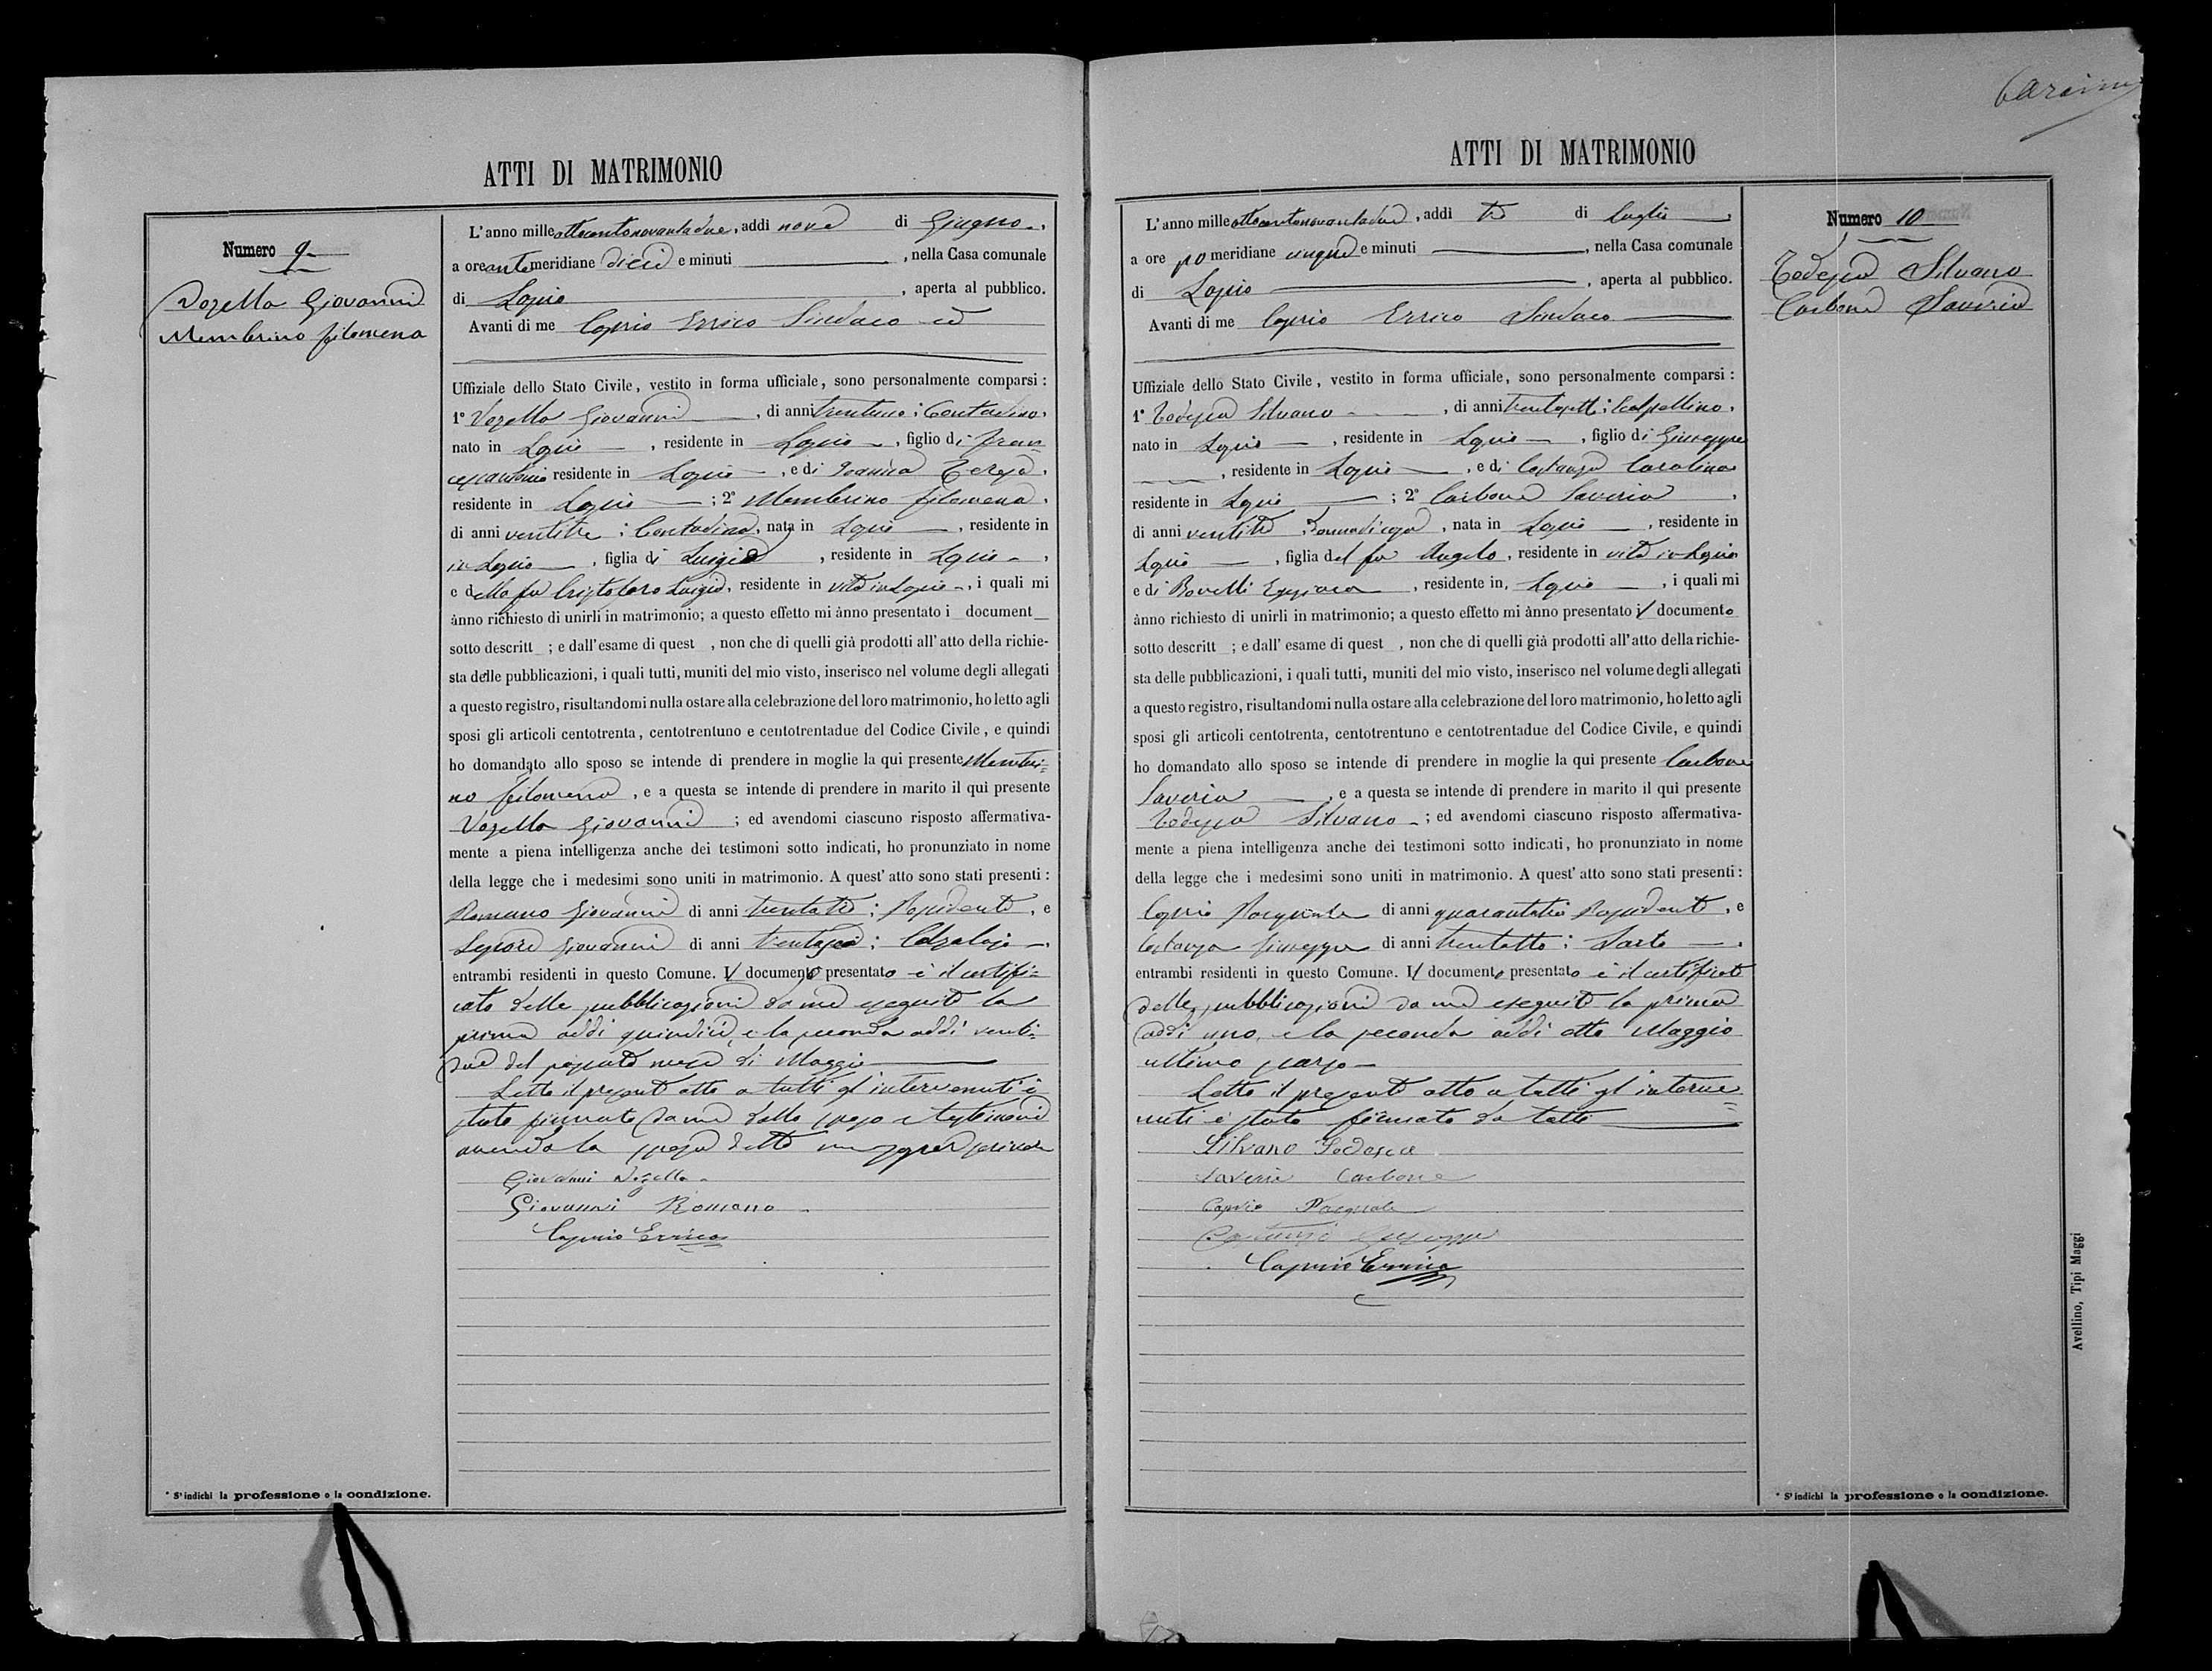 ATTI DI MATRIMONIO
Numero 9
Vozella Giovanni
Membrino Filomena
L'anno mille ottocentonovantadue, addi nove di Giugno,
a ore ante meridiane dieci e minuti , nella Casa comunale
di Lapio , aperta al pubblico.
Avanti di me Caprio Errico Sindaco ed
Uffiziale dello Stato Civile, vestito in forma ufficiale, sono personalmente comparsi:
1° Vozella Giovanni , di anni trentuno; Contadino,
nato in Lapio , residente in Lapio , figlio di Fran
cescantonio residente in Lapio , e di Teresa,
residente in Lapio ; 2° Membrino Filomena,
di anni ventitre; Contadina, nata in Lapio , residente in
in Lapio , figlia di Luigi , residente in Lapio ,
e della fu Cristofaro Luigia, residente in vita in Lapio , i quali mi
ànno richiesto di unirli in matrimonio; a questo effetto mi ànno presentato i document
sotto descritt ; e dall'esame di quest , non che di quelli già prodotti all'atto della richie-
sta delle pubblicazioni, i quali tutti, muniti del mio visto, inserisco nel volume degli allegati
a questo registro, risultandomi nulla ostare alla celebrazione del loro matrimonio, ho letto agli
sposi gli articoli centotrenta, centotrentuno e centotrentadue del Codice Civile, e quindi
ho domandato allo sposo se intende di prendere in moglie la qui presente Membri=
no Filomena , e a questa se intende di prendere in marito il qui presente
Vozella Giovanni ; ed avendomi ciascuno risposto affermativa-
mente a piena intelligenza anche dei testimoni sotto indicati, ho pronunziato in nome
della legge che i medesimi sono uniti in matrimonio. A quest'atto sono stati presenti:
Romano Giovanni di anni trentatre; Possidente, e
Lepore Giovanni di anni trentasei; Calzolajo ,
entrambi residenti in questo Comune. Il documento presentato è il certifi=
cato delle pubblicazioni da me eseguite la
prima addi quindici, e la seconda addi venti=
due del passato mese di Maggio
Letto il presente atto a tutti gl'intervenuti è
stato firmato da me dallo sposo e testimoni
avendo la sposa detto non saper scrivere
Giovanni Vozella
Giovanni Romano
Caprio Errico
* S'indichi la professione o la condizione.
ATTI DI MATRIMONIO
Numero 10
Tedesco Silvano
Carbone Saveria
L'anno mille ottocentonovantadue, addi tre di Luglio ,
a ore po meridiane cinque e minuti , nella Casa comunale
di Lapio , aperta al pubblico.
Avanti di me Caprio Errico Sindaco
Uffiziale dello Stato Civile, vestito in forma ufficiale, sono personalmente comparsi:
1° Tedesco Silvano , di anni trentasette; Scalpellino,
nato in Lapio , residente in Lapio , figlio di Giuseppe
, residente in Lapio , e di Costanza Carolina
residente in Lapio ; 2° Carbone Saveria ,
di anni ventitre, Donnadicasa , nata in Lapio , residente in
Lapio , figlia del fu Angelo, residente in vita in Lapio
e di , residente in, Lapio , i quali mi
ànno richiesto di unirli in matrimonio; a questo effetto mi ànno presentato il documento
sotto descritt ; e dall'esame di quest , non che di quelli già prodotti all'atto della richie-
sta delle pubblicazioni, i quali tutti, muniti del mio visto, inserisco nel volume degli allegati
a questo registro, risultandomi nulla ostare alla celebrazione del loro matrimonio, ho letto agli
sposi gli articoli centotrenta, centotrentuno e centotrentadue del Codice Civile, e quindi
ho domandato allo sposo se intende di prendere in moglie la qui presente Carbone
Saveria , e a questa se intende di prendere in marito il qui presente
Tedesco Silvano ; ed avendomi ciascuno risposto affermativa-
mente a piena intelligenza anche dei testimoni sotto indicati, ho pronunziato in nome
della legge che i medesimi sono uniti in matrimonio. A quest'atto sono stati presenti:
Caprio Pasquale di anni quarantatre Possidente, e
Costanza Giuseppe di anni trentotto; Sarto ,
entrambi residenti in questo Comune. Il documento presentato è il certificato
delle pubblicazioni da me eseguite la prima
addi uno, e la seconda addi otto Maggio
ultimo scorso
Letto il presente atto a tutti gl'interve=
nuti è stato firmato da tutti
Silvano Tedesco
Saveria Carbone
Caprio Pasquale
Costanza Giuseppe
Caprio Errico
* S'indichi la professione o la condizione.
Avellino, Tipi Maggi